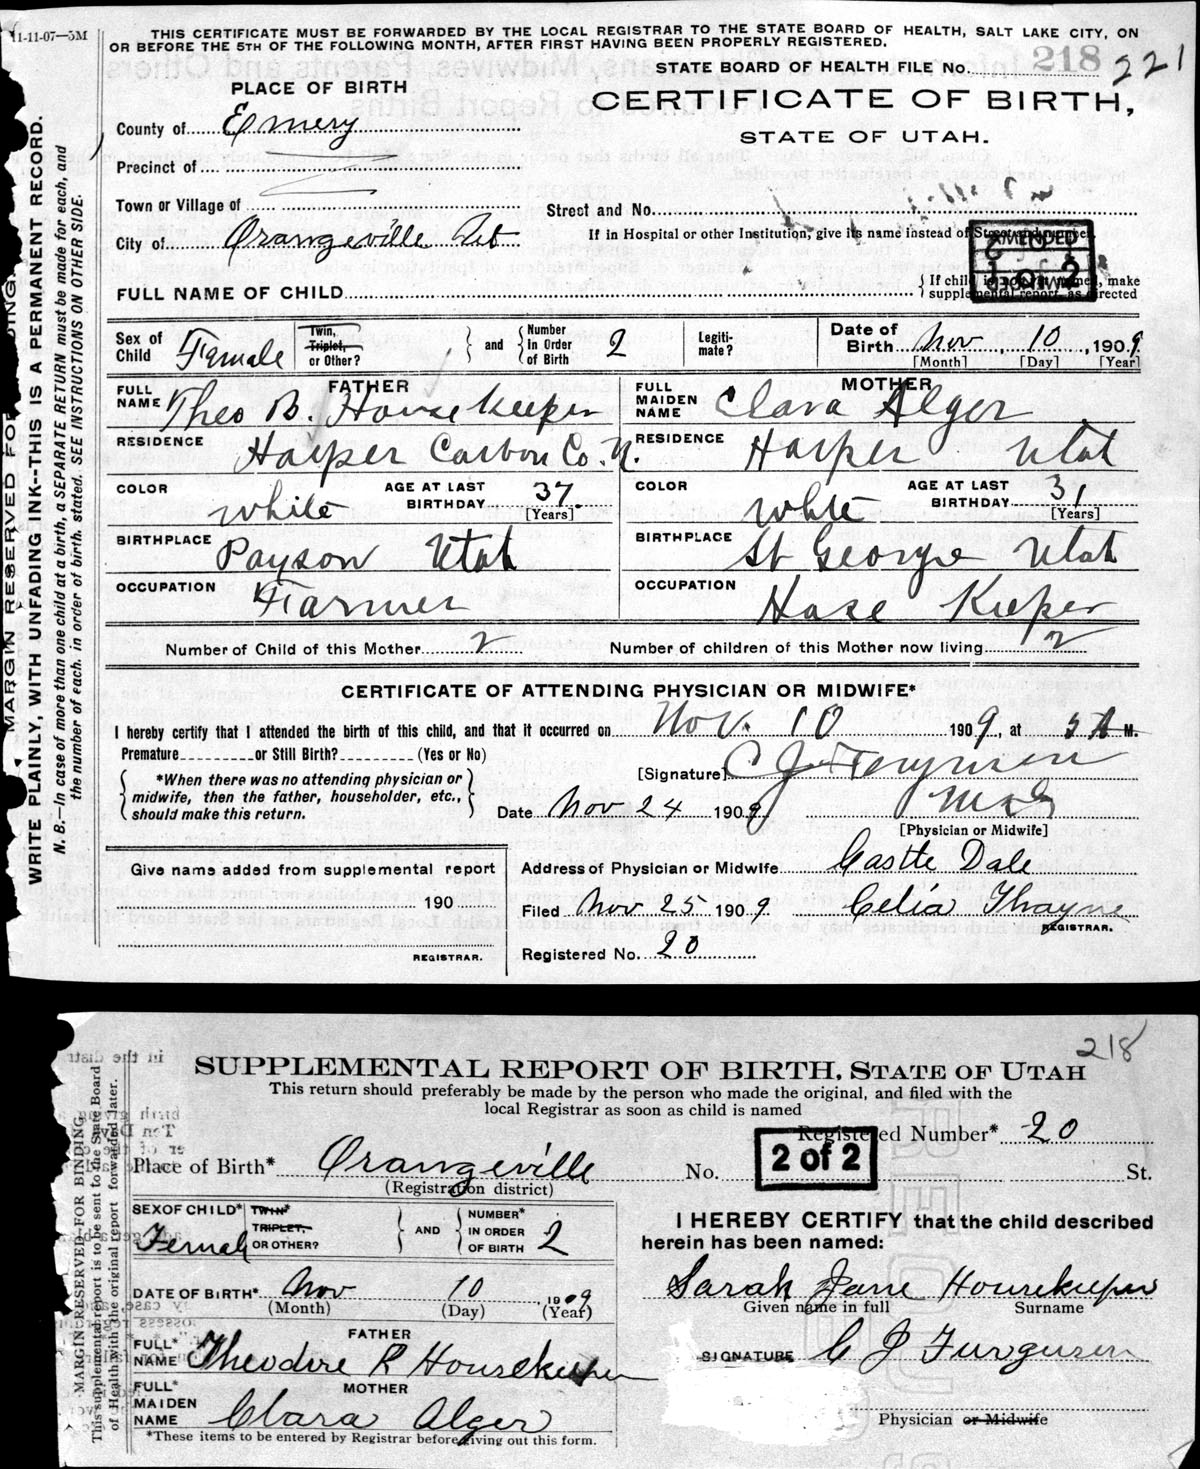 11-11-07—5M
THIS CERTIFICATE MUST BE FORWARDED BY THE LOCAL REGISTRAR TO THE STATE BOARD OF HEALTH, SALT LAKE CITY, ON
OR BEFORE THE 5TH OF THE FOLLOWING MONTH, AFTER FIRST HAVING BEEN PROPERLY REGISTERED.
STATE BOARD OF HEALTH FILE No. 218 221
PLACE OF BIRTH
CERTIFICATE OF BIRTH,
STATE OF UTAH.
County of Emery
Precinct of
Town or Village of
Street and No.
City of Orangeville
If in Hospital or other Institution, give its name instead of Street and number.
AMENDED
1 of 2
FULL NAME OF CHILD
{ If child is not yet named, make
supplemental report, as directed
Sex of Child Female
Twin, Triplet, or Other?
and
Number In Order of Birth 2
Legiti-mate?
Date of Birth Nov 10, 1909
[Month] [Day] [Year]
FATHER
FULL NAME Theo B. Housekeeper
MOTHER
FULL MAIDEN NAME Clara Alger
RESIDENCE Harper Carbon Co. U.
RESIDENCE Harper Utah
COLOR white
AGE AT LAST BIRTHDAY 37 [Years]
COLOR white
AGE AT LAST BIRTHDAY 31 [Years]
BIRTHPLACE Payson Utah
BIRTHPLACE St George Utah
OCCUPATION Farmer
OCCUPATION Hase Keeper
Number of Child of this Mother 2
Number of children of this Mother now living 2
CERTIFICATE OF ATTENDING PHYSICIAN OR MIDWIFE*
I hereby certify that I attended the birth of this child, and that it occurred on Nov. 10 1909, at 5 A M.
Premature or Still Birth? (Yes or No)
*When there was no attending physician or
midwife, then the father, householder, etc.,
should make this return.
[Signature] C J
Date Nov 24 1909
[Physician or Midwife]
Give name added from supplemental report
190
REGISTRAR.
Address of Physician or Midwife Castle Dale
Filed Nov 25 1909 Celia Thayne
REGISTRAR.
Registered No. 20
MARGIN RESERVED FOR BINDING.
WRITE PLAINLY, WITH UNFADING INK--THIS IS A PERMANENT RECORD.
N. B.—In case of more than one child at a birth, a SEPARATE RETURN must be made for each, and
the number of each, in order of birth, stated. SEE INSTRUCTIONS ON OTHER SIDE.
218
SUPPLEMENTAL REPORT OF BIRTH, STATE OF UTAH
This return should preferably be made by the person who made the original, and filed with the
local Registrar as soon as child is named
Registered Number* 20
2 of 2
Place of Birth* Orangeville No. St.
(Registration district)
SEX OF CHILD* Female
TWIN* TRIPLET, OR OTHER?
AND
NUMBER* IN ORDER OF BIRTH 2
I HEREBY CERTIFY that the child described
herein has been named:
Sarah Jane Housekeeper
Given name in full Surname
DATE OF BIRTH* Nov 10, 1909
(Month) (Day) (Year)
FATHER
FULL* NAME Theodore R Housekeeper
SIGNATURE C J Furguson
MOTHER
FULL* MAIDEN NAME Clara Alger
Physician or Midwife
*These items to be entered by Registrar before giving out this form.
MARGIN RESERVED FOR BINDING
This supplemental report is to be sent to the State Board
of Health with the original report forwarded later.